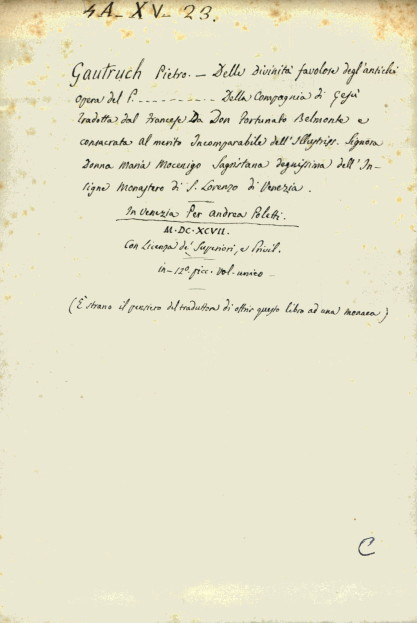 4A-XV-23.
Gautruch Pietro. — Delle divinità favolose degl'antichi
Opera del P. . . . . . . . . . . Della Compagnia di Gesù
tradotta dal Francese Da Don Fortunato Belmonte e
consacrata al merito Incomparabile dell'Illustriss. Signora
Donna Maria Mocenigo Sagristana degnissima dell'In-
signe Monastero di S. Lorenzo di Venezia.
In Venezia Per Andrea Poletti.
M·DC·XCVII.
Con Licenza de' Superiori, e Privil.
in-12º. picc. vol. unico
(È strano il pensiero del traduttore di offrir questo libro ad una monaca)
C